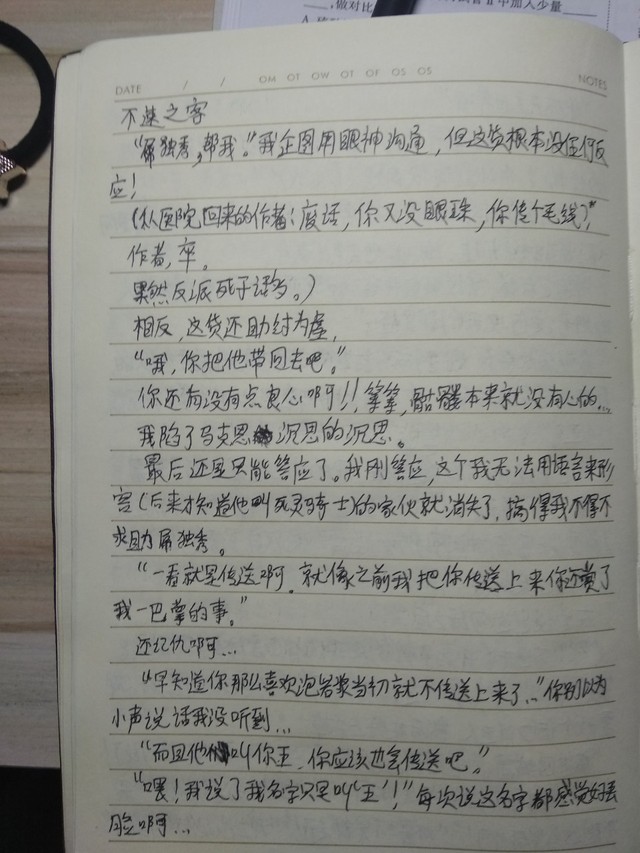 ,做对比
Ⅱ中加入少量
DATE / / OM OT OW OT OF OS OS NOTES
不速之客
“屌独秀,帮我。”我企图用眼神沟通,但这货根本没任何反
应!
(从医院回来的作者:废话,你又没眼珠,你传个毛线?”
作者,卒。
果然反派死于话多。)
相反,这货还助纣为虐,
“哦,你把他带回去吧。”
你还有没有点良心啊!!等等,骷髅本来就没有心的…
我陷了马克思沉思的沉思。
最后还是只能答应了。我刚答应,这个我无法用语言来形
容(后来才知道他叫死灵骑士)的家伙就消失了,搞得我不得不
求助屌独秀。
“一看就是传送啊.就像之前我把你传送上来你还赏了
我一巴掌的事。”
还纪仇啊…
“早知道你那么喜欢泡岩浆当初就不传送上来了…”你别以为
小声说话我没听到…
“而且他叫你王,你应该也会传送吧。”
“喂!我说了我名字只是叫‘王’!”每次说这名字都感觉好丢
脸啊…